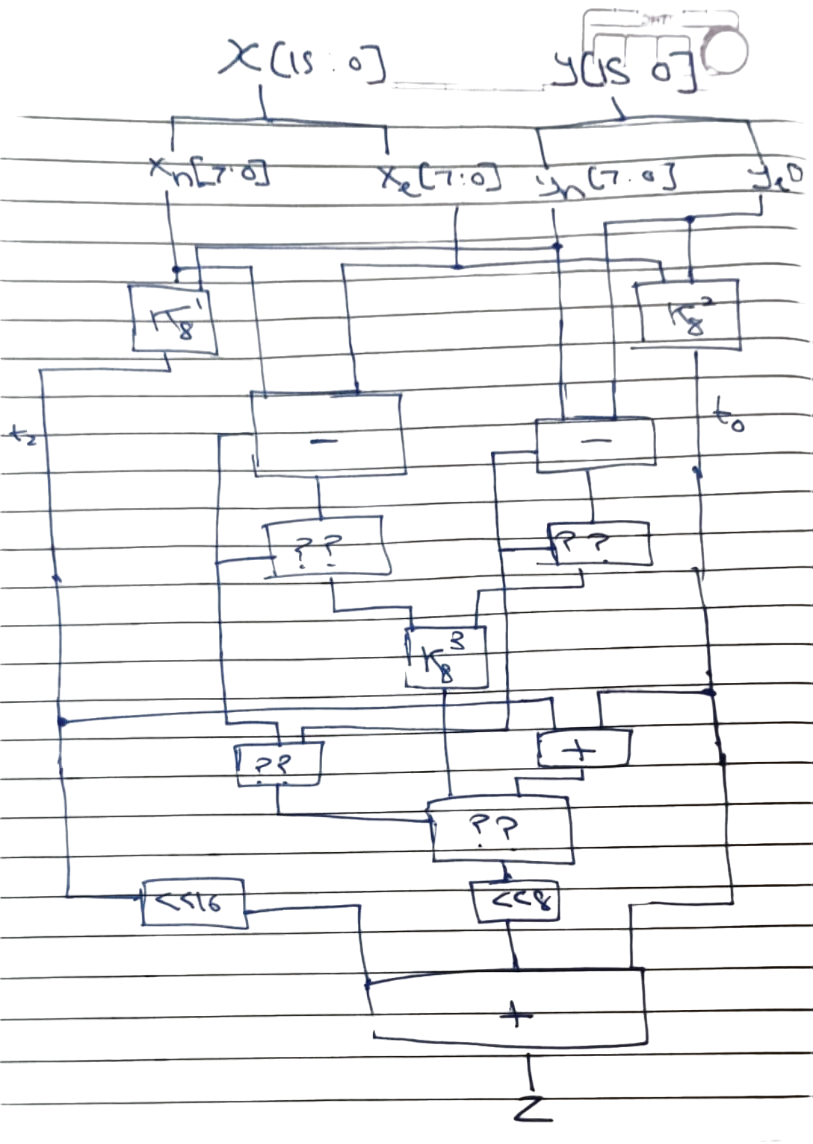 X[15:0] y[15 0]
xn[7:0] xe[7:0] yn[7:0] ye0
K8^1 K8^2
t2 - - t0
?? ??
K8^3
?? +
??
<<16 <<8
+
Z